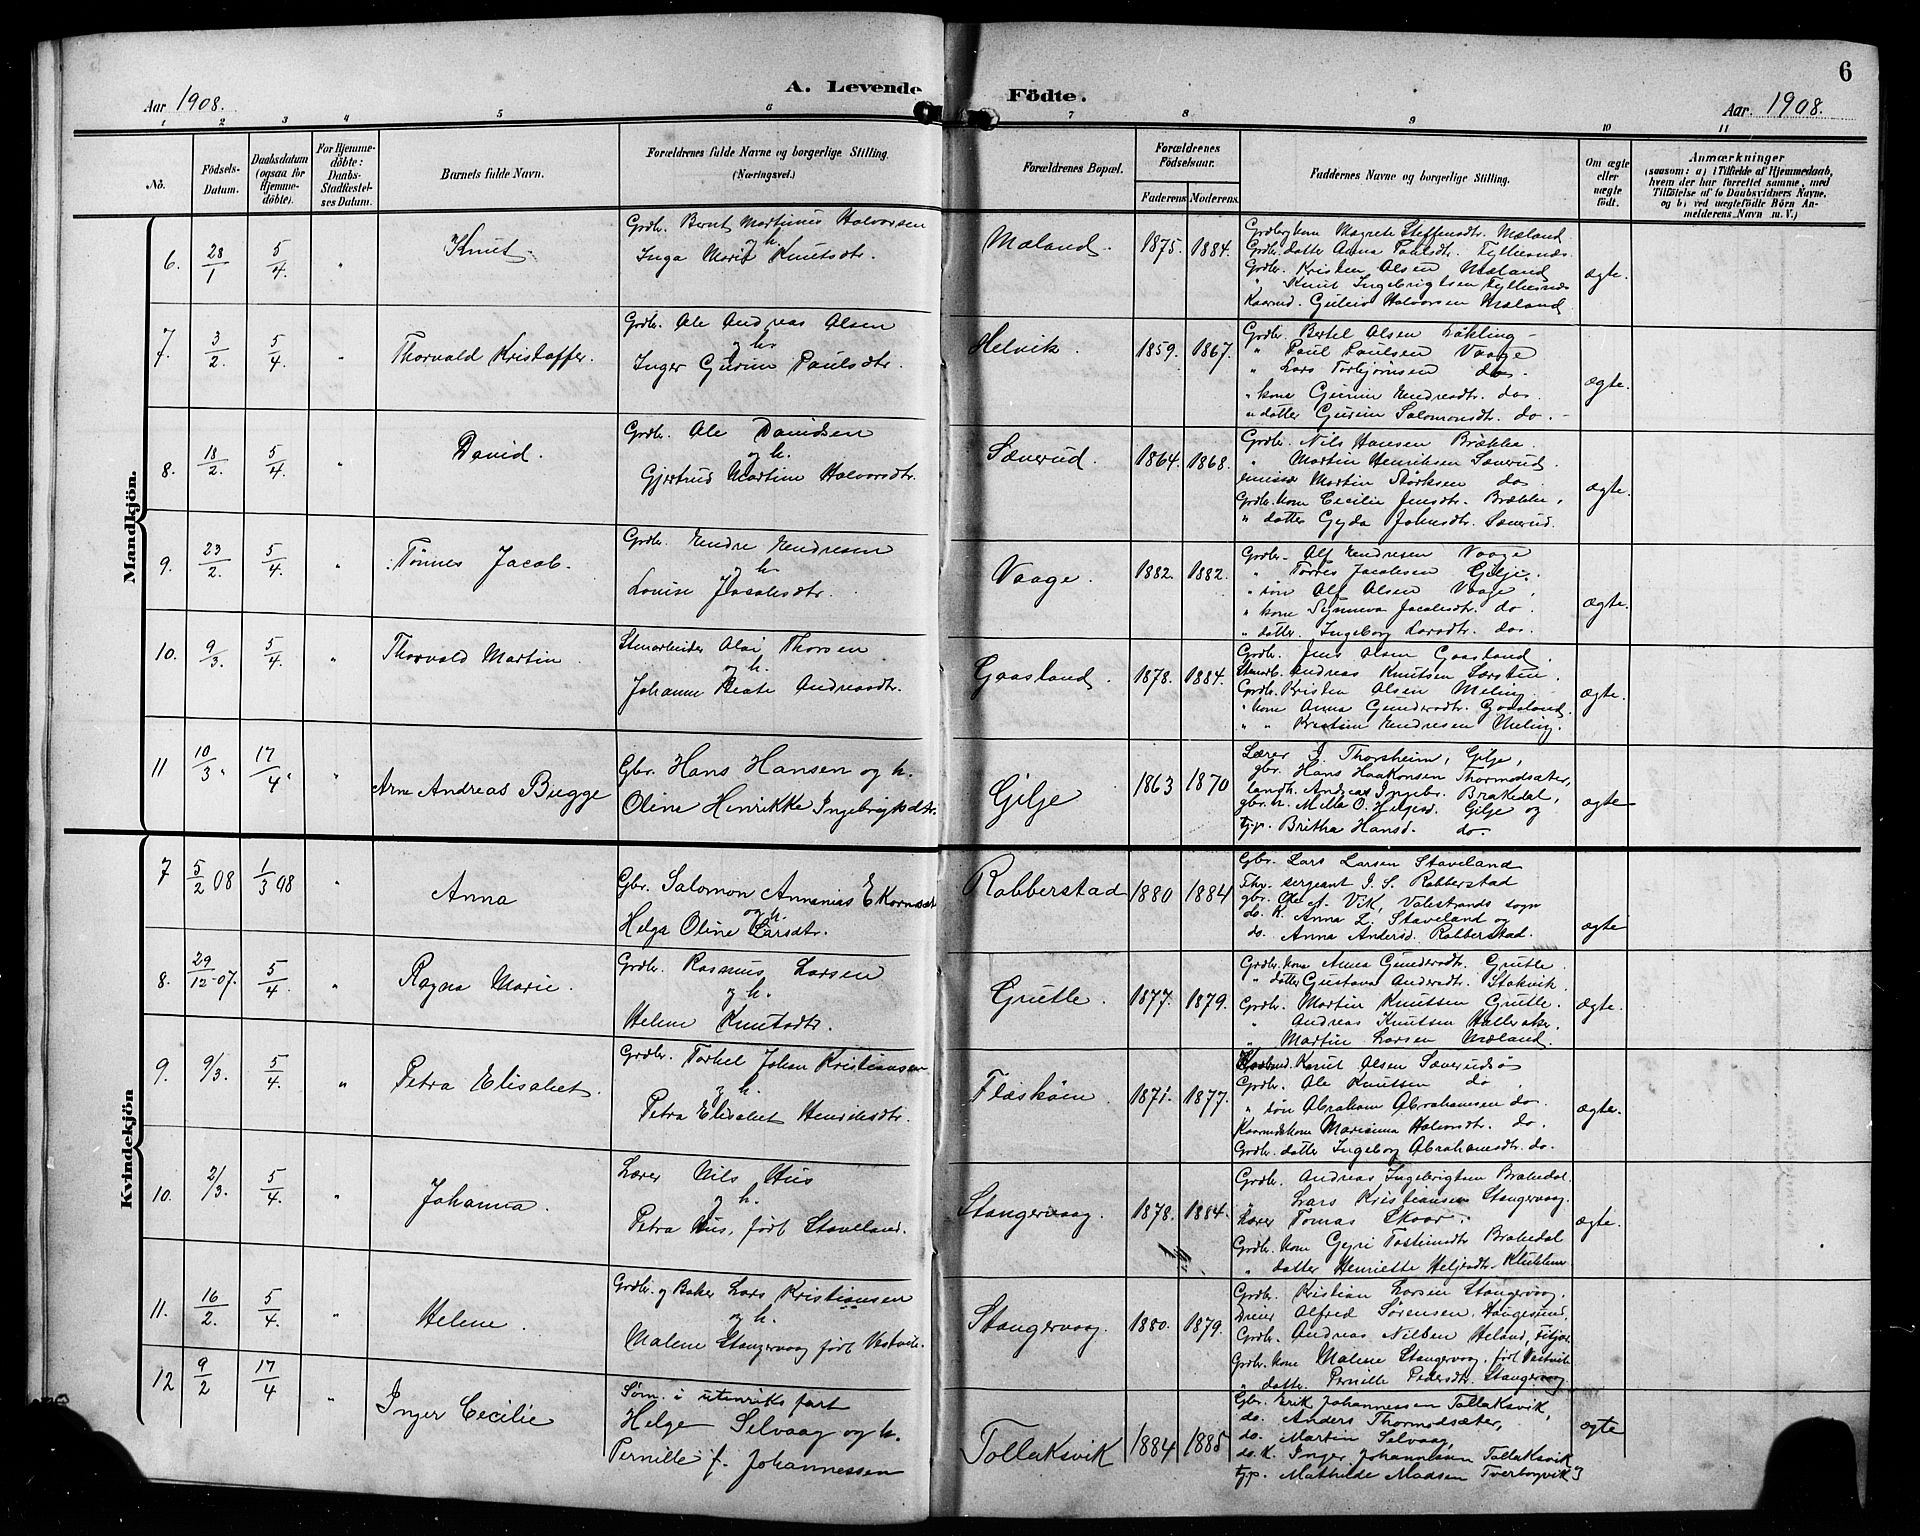 6
Aar 1908.
A. Levende
Födte.
Aar. 1908.
1 2 3 4 5 6 7 8 9 10 11
No.
Födsels-
Datum.
Daabsdatum
(ogsaa for
Hjemme-
döbte).
For Hjemme-
döbte:
Daabs-
Stadfæstel-
ses Datum.
Barnets fulde Navn.
Forældrenes fulde Navne og borgerlige Stilling.
(Næringsvei.)
Forældrenes Bopæl.
Forældrenes
Födselsaar.
Faderens Moderens.
Faddernes Navne og borgerlige Stilling.
Om ægte
eller
uægte
födt.
Anmærkninger
(saasom: a) i Tilfælde af Hjemmedaab,
hvem der har forrettet samme, med
Tilföielse af to Daabsvidners Navne,
og b) ved uægtefödte Börn An-
melderens Navn m. V.)
Mandkjön.
6. 28/1 5/4. " Knut.
Grdbr. Bernt Martinus Halvorsen
og h.
Inga Marie Knutsdtr.
Mæland. 1875. 1884.
Grdbrkone Magrete Steffensdtr. Mæland.
Grdbr. datter Anna Paulsdtr.
Grdbr. Kristen Olsen Mæland
" Knut Ingebrigtsen
Kaarmd. Halvorsen Mæland
ægte.
7. 3/2. 5/4. " Thorvald Kristoffer.
Grdbr. Ole Andreas Olsen
og h.
Inger Gurine Paulsdtr.
Helvik. 1859. 1867.
Grdbr. Bertel Olsen
" Paul Paulsen Vaage
" Lars Torbjørnsen do.
" kone Gurine Endresdtr. do.
" datter Gurine Salomonsdtr. do.
ægte.
8. 18/2. 5/4. " David.
Grdbr. Ole Davidsen
og h.
Gjertrud Martine Halvorsdtr.
Sæverud. 1864. 1868.
Grdbr. Nils Hansen Brække.
" Martin Henriksen Sæverud.
Martin Størksen do.
Grdbr. kone Cecilie Jensdtr. Brække.
" datter Gyda Johnsdtr. Sæverud.
ægte.
9. 23/2. 5/4. " Tønnes Jacob.
Grdbr. Endre Endresen
og h.
Louise Jacobsdtr.
Vaage. 1882. 1882.
Grdbr. Alf Endresen Vaage
" Torres Jacobsen Gilje.
" søn Alf Olsen Vaage.
" kone Synneva Jacobsdtr. do.
" datter. Ingeborg Larsdtr. do.
ægte.
10. 9/3. 5/4. " Thorvald Martin
Stenarbeider Olai Thorsen
og h.
Johanne Beate Andreasdtr.
Gaasland. 1878. 1884.
Grdbr. Jens Olsen Gaasland.
Stenarb. Andreas Knutsen
Grdbr. Kristen Olsen Meling.
" kone Anna Gundersdtr. Gaasland.
" " Kristine Endresen Meling.
ægte.
11 10/3. 17/4. " Arne Andreas Bugge
Gbr. Hans Hansen og h.
Oline Henrikke Ingebrigtsdtr.
Gilje 1863 1870
Lærer J. Thorsheim, Gilje,
gbr. Hans Haakonsen Thormodsæter,
landh. Andreas Ingebr. Brakedal,
gbr. h. Milla O. Helgesd. Gilje og
tjp. Britha Hansd. do.
ægte
Kvindekjön
7 5/2 08 1/3 08 " Anna
Gbr. Salomon Annanias Ekornsæt
og h.
Helga Oline Larsdtr.
Robberstad 1880 1884
Gbr. Lars Larsen Staveland
Fhv. sergeant J. S. Robberstad
gbr. Ole A. Vik, Valestrands sogn
do. K. Anna L. Staveland og
do. Anna Andersd. Robberstad.
ægte
8. 29/12-07. 5/4. " Ragna Marie.
Grdbr. Rasmus Larsen
og h.
Helene Knutsdtr.
Grutle. 1877. 1879.
Grdbr. kone Anna Gundersdtr. Grutle.
" datter Gustava Andersdtr. Stokvik.
Grdbr. Martin Knutsen Grutle.
" Andreas Knutsen Halleraker.
" Martin Larsen Mæland.
ægte.
9. 9/3. 5/4. " Petra Elisabet.
Grdbr. Torkel Johan Kristiansen
og h.
Petra Elisabet Henriksdtr.
Flæskøin. 1871. 1877.
Kaarmd. Knut Olsen Sæverudsø
Grdbr. Ole Knutsen do.
" søn Abraham Abrahamsen do.
Kaarmdskone Marianna Halvorsdtr. do.
Grdbr. datter Ingeborg Abrahamsdtr. do.
ægte.
10. 2/3. 5/4. " Johanna.
Lærer Nils Hus
og h.
Petra Hus, født Staveland.
Stangervaag. 1878. 1884.
Grdbr. Andreas Ingebrigtsen Brakedal.
" Lars Kristiansen Stangervaag.
Lærer Tomas Skaar.
Grdbr. kone Gyri Tostensdtr. Brakedal
" datter Henriette Heljesdtr.
ægte.
11. 16/2. 5/4. " Helene.
Grdbr. og Baker Lars Kristiansen
og h.
Malene Stangervaag født Vestvik.
Stangervaag. 1880. 1879.
Grdbr. Kristian Larsen Stangervaag.
Alfred Sørensen, Haugesund,
Grdbr. Andreas Nilsen Heland, Fitjar
Grdbr. kone Malene Stangervaag, født Vestvik
" datter. Pernille Pedersdtr. Stangervaag.
12 9/2 17/4 " Inger Cecilie
Søm. i utenriks fart
Helge Selvaag og h.
Pernille f. Johannessen
Tollaksvik 1884 1885
Gbr. Erik Johannessen Tollaksvik,
do. Anders Thormodsæter,
do. Martin Selvaag
do. K. Inger Johannessen Tollaksvik
tjp. Mathilde Madsen Tverborgvik
ægte